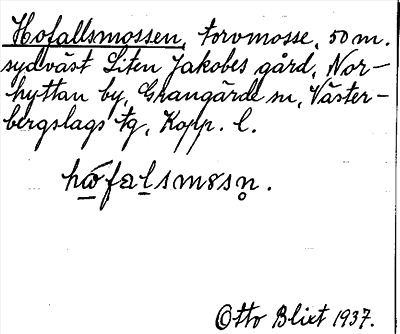 Hofallsmossen, torvmosse, 50 m.
sydväst Liten Jakobes gård, Nor-
hyttan by, Grangärde sn, Väster-
bergslags tg, Kopp. l.
hofalsmosn.
Otto Blixt 1937.